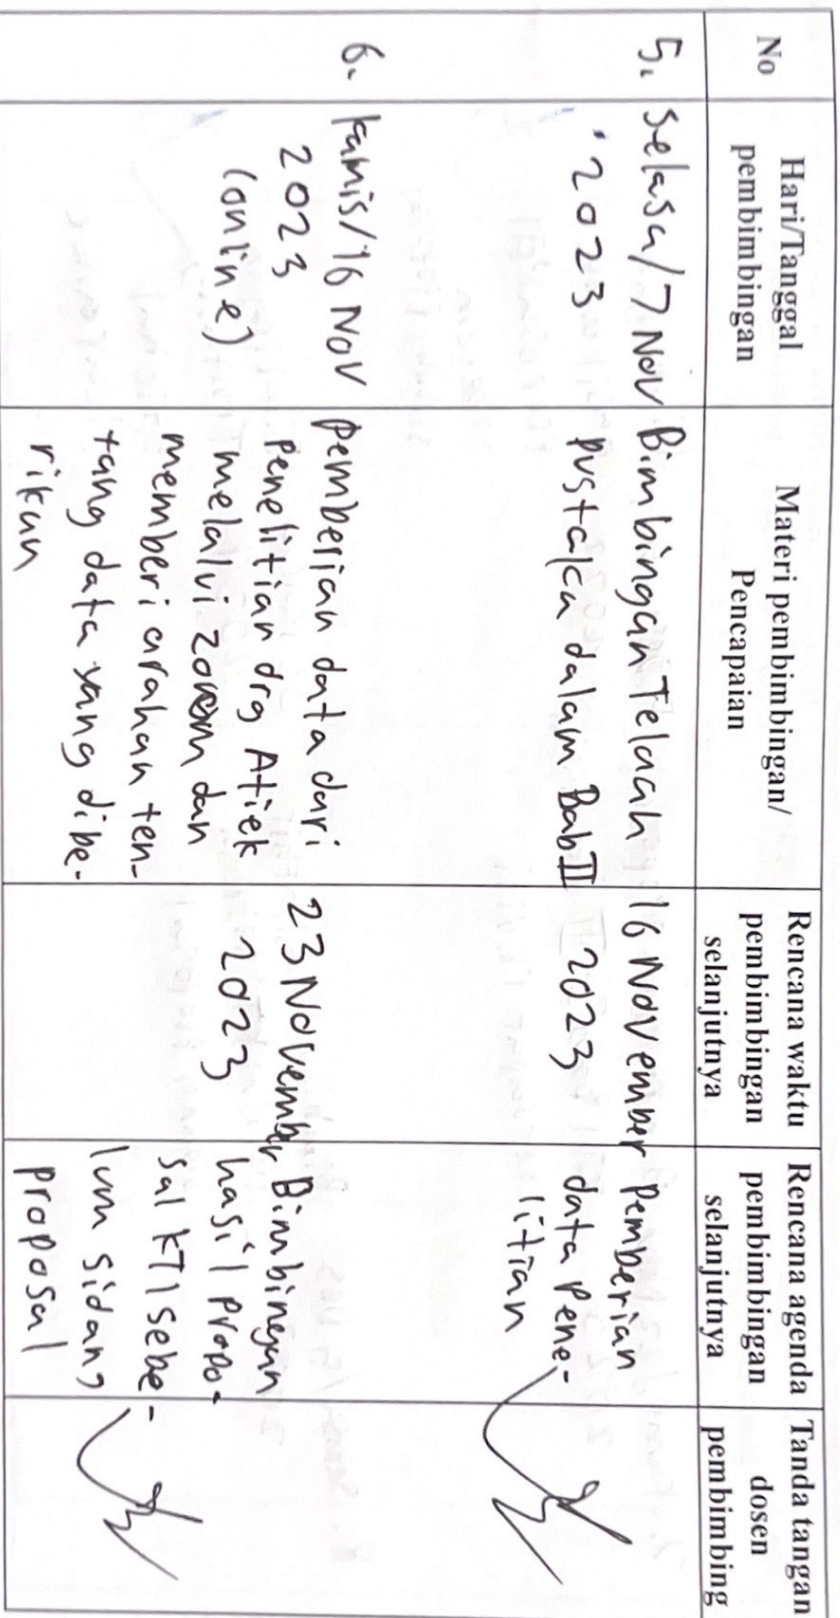 No
Hari/Tanggal
pembimbingan
Materi pembimbingan/
Pencapaian
Rencana waktu
pembimbingan
selanjutnya
Rencana agenda
pembimbingan
selanjutnya
Tanda tangan
dosen
pembimbing
5.
Selasa/7 Nov
2023
Bimbingan Telaah
pustaka dalam Bab II
16 November
2023
Pemberian
data pene-
litian
6.
Kamis/16 Nov
2023
(online)
Pemberian data dari
penelitian drg Atiek
melalui zoom dan
memberi arahan ten-
tang data yang dibe-
rikan
23 November
2023
Bimbingan
hasil propo-
sal KTI sebe-
lum sidang
proposal